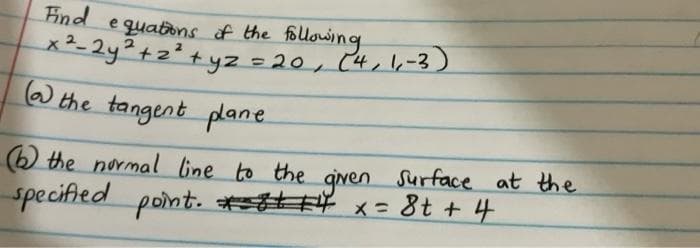 Find equations of the following
x²-2y²+z²+yz=20, (4,1,-3)
(a) the tangent plane
(b) the normal line to the given surface at the
specified point. x=8t+4 x=8t+4